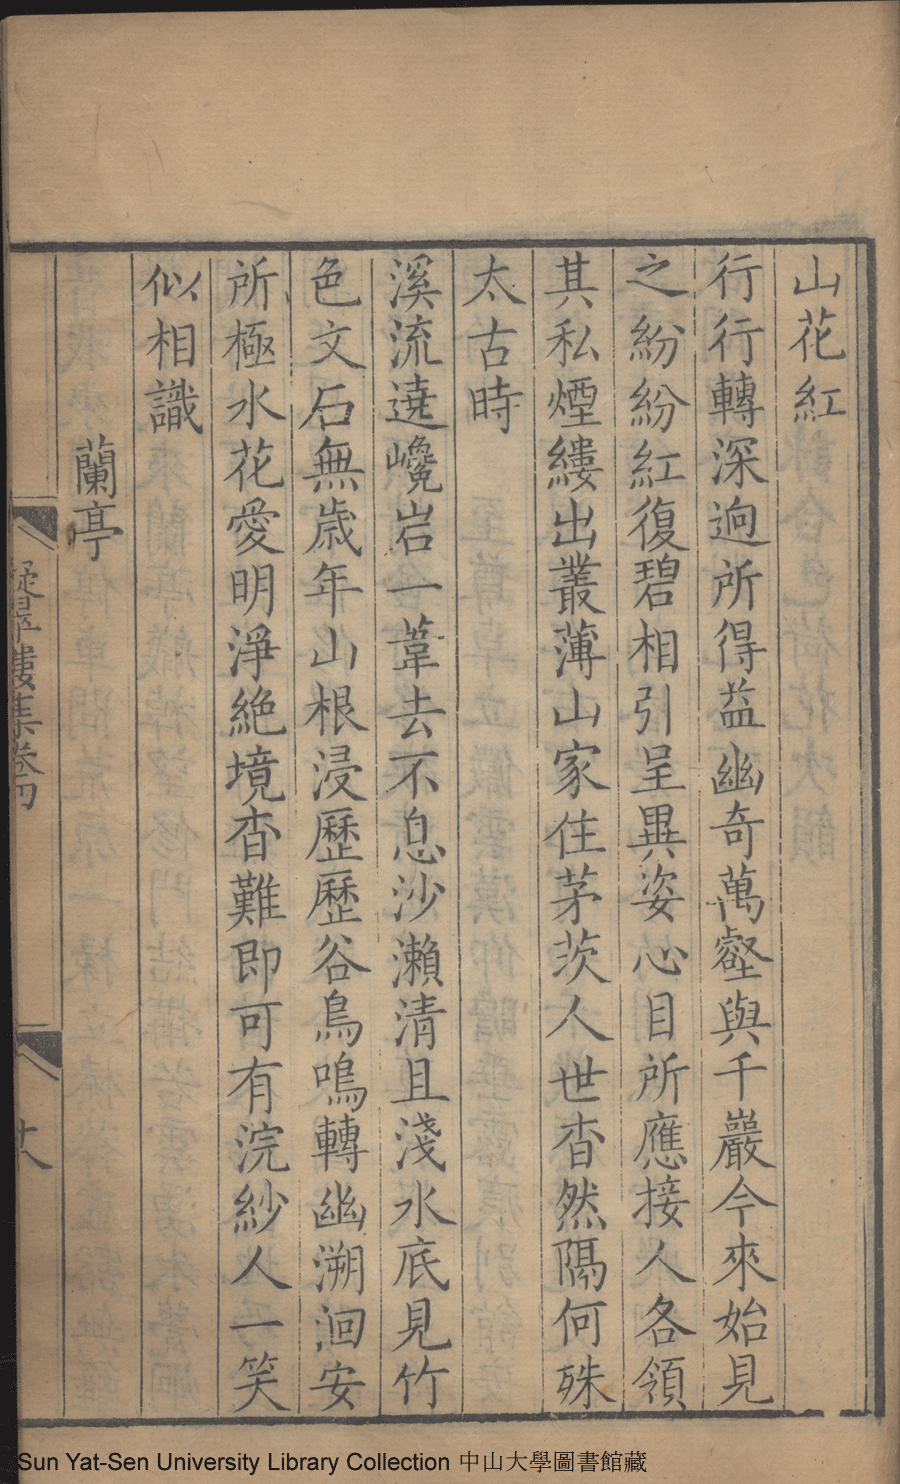 山花紅
行行轉深逈所得益幽奇萬壑與千巖今來始見
之紛紛紅復碧相引呈異姿心目所應接人各領
其私煙縷出叢薄山家住茅茨人世杳然隔何殊
太古時
溪流遶巉岩一葦去不息沙瀨清且淺水底見竹
色文石無歳年山根浸歷歷谷鳥鳴轉幽溯洄安
所極水花愛明淨絶境杳難即可有浣紗人一笑
似相識
蘭亭
樓集卷四
廿八
Sun Yat-Sen University Library Collection 中山大學圖書館藏